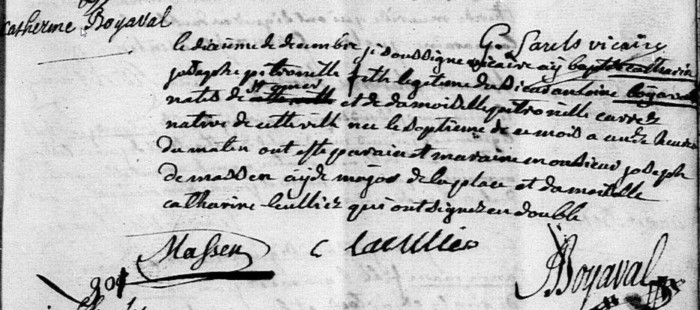 Catherine Boyaval
G. Sarels vicaire
le dixieme de decembre je soussigné vicaire ay baptisé catharin
josephe pitronelle fille legitime du Sieur antoine boyaval
natif de St omer et de damoiselle pitronelle carrez
native de cette ville nee le septieme de ce mois a onze heures
du matin ont esté parain et maraine monsieur joseph
de massen ayde major de la place et damoiselle
catharine leulliez qui ont signez en double
Massen
C Laeullies
Boyaval